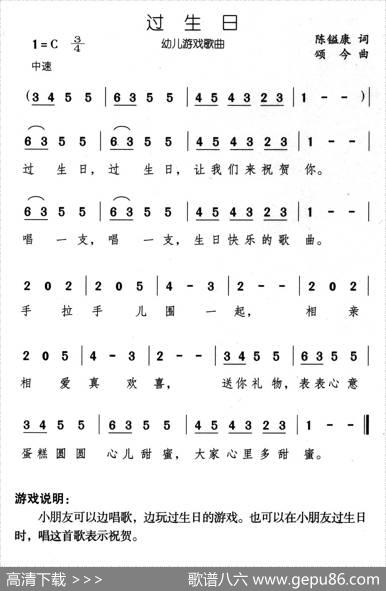 过生日
1=C 3/4
幼儿游戏歌曲
陈镒康 词
颂今 曲
中速
(3 4 5 5 | 6 3 5 5 | 4 5 4 3 2 3 | 1 - - ) |
6 3 5 5 | 6 3 5 5 | 4 5 4 3 2 3 | 1 - - |
过生日，过生日，让我们来祝贺你。
6 3 5 5 | 6 3 5 5 | 4 5 4 3 2 3 | 1 - - |
唱一支，唱一支，生日快乐的歌曲。
2 0 2 | 2 0 5 | 4 - 3 | 2 - - | 2 0 2 |
手拉手儿围一起，相亲
2 0 5 | 4 - 3 | 2 - - | 3 4 5 5 | 6 3 5 5 |
相爱真欢喜，送你礼物，表表心意
3 4 5 5 | 6 3 5 5 | 4 5 4 3 2 3 | 1 - - ‖
蛋糕圆圆心儿甜蜜，大家心里多甜蜜。
游戏说明：
小朋友可以边唱歌，边玩过生日的游戏。也可以在小朋友过生日
时，唱这首歌表示祝贺。
高清下载 >>>
歌谱八六 www.gepu86.com